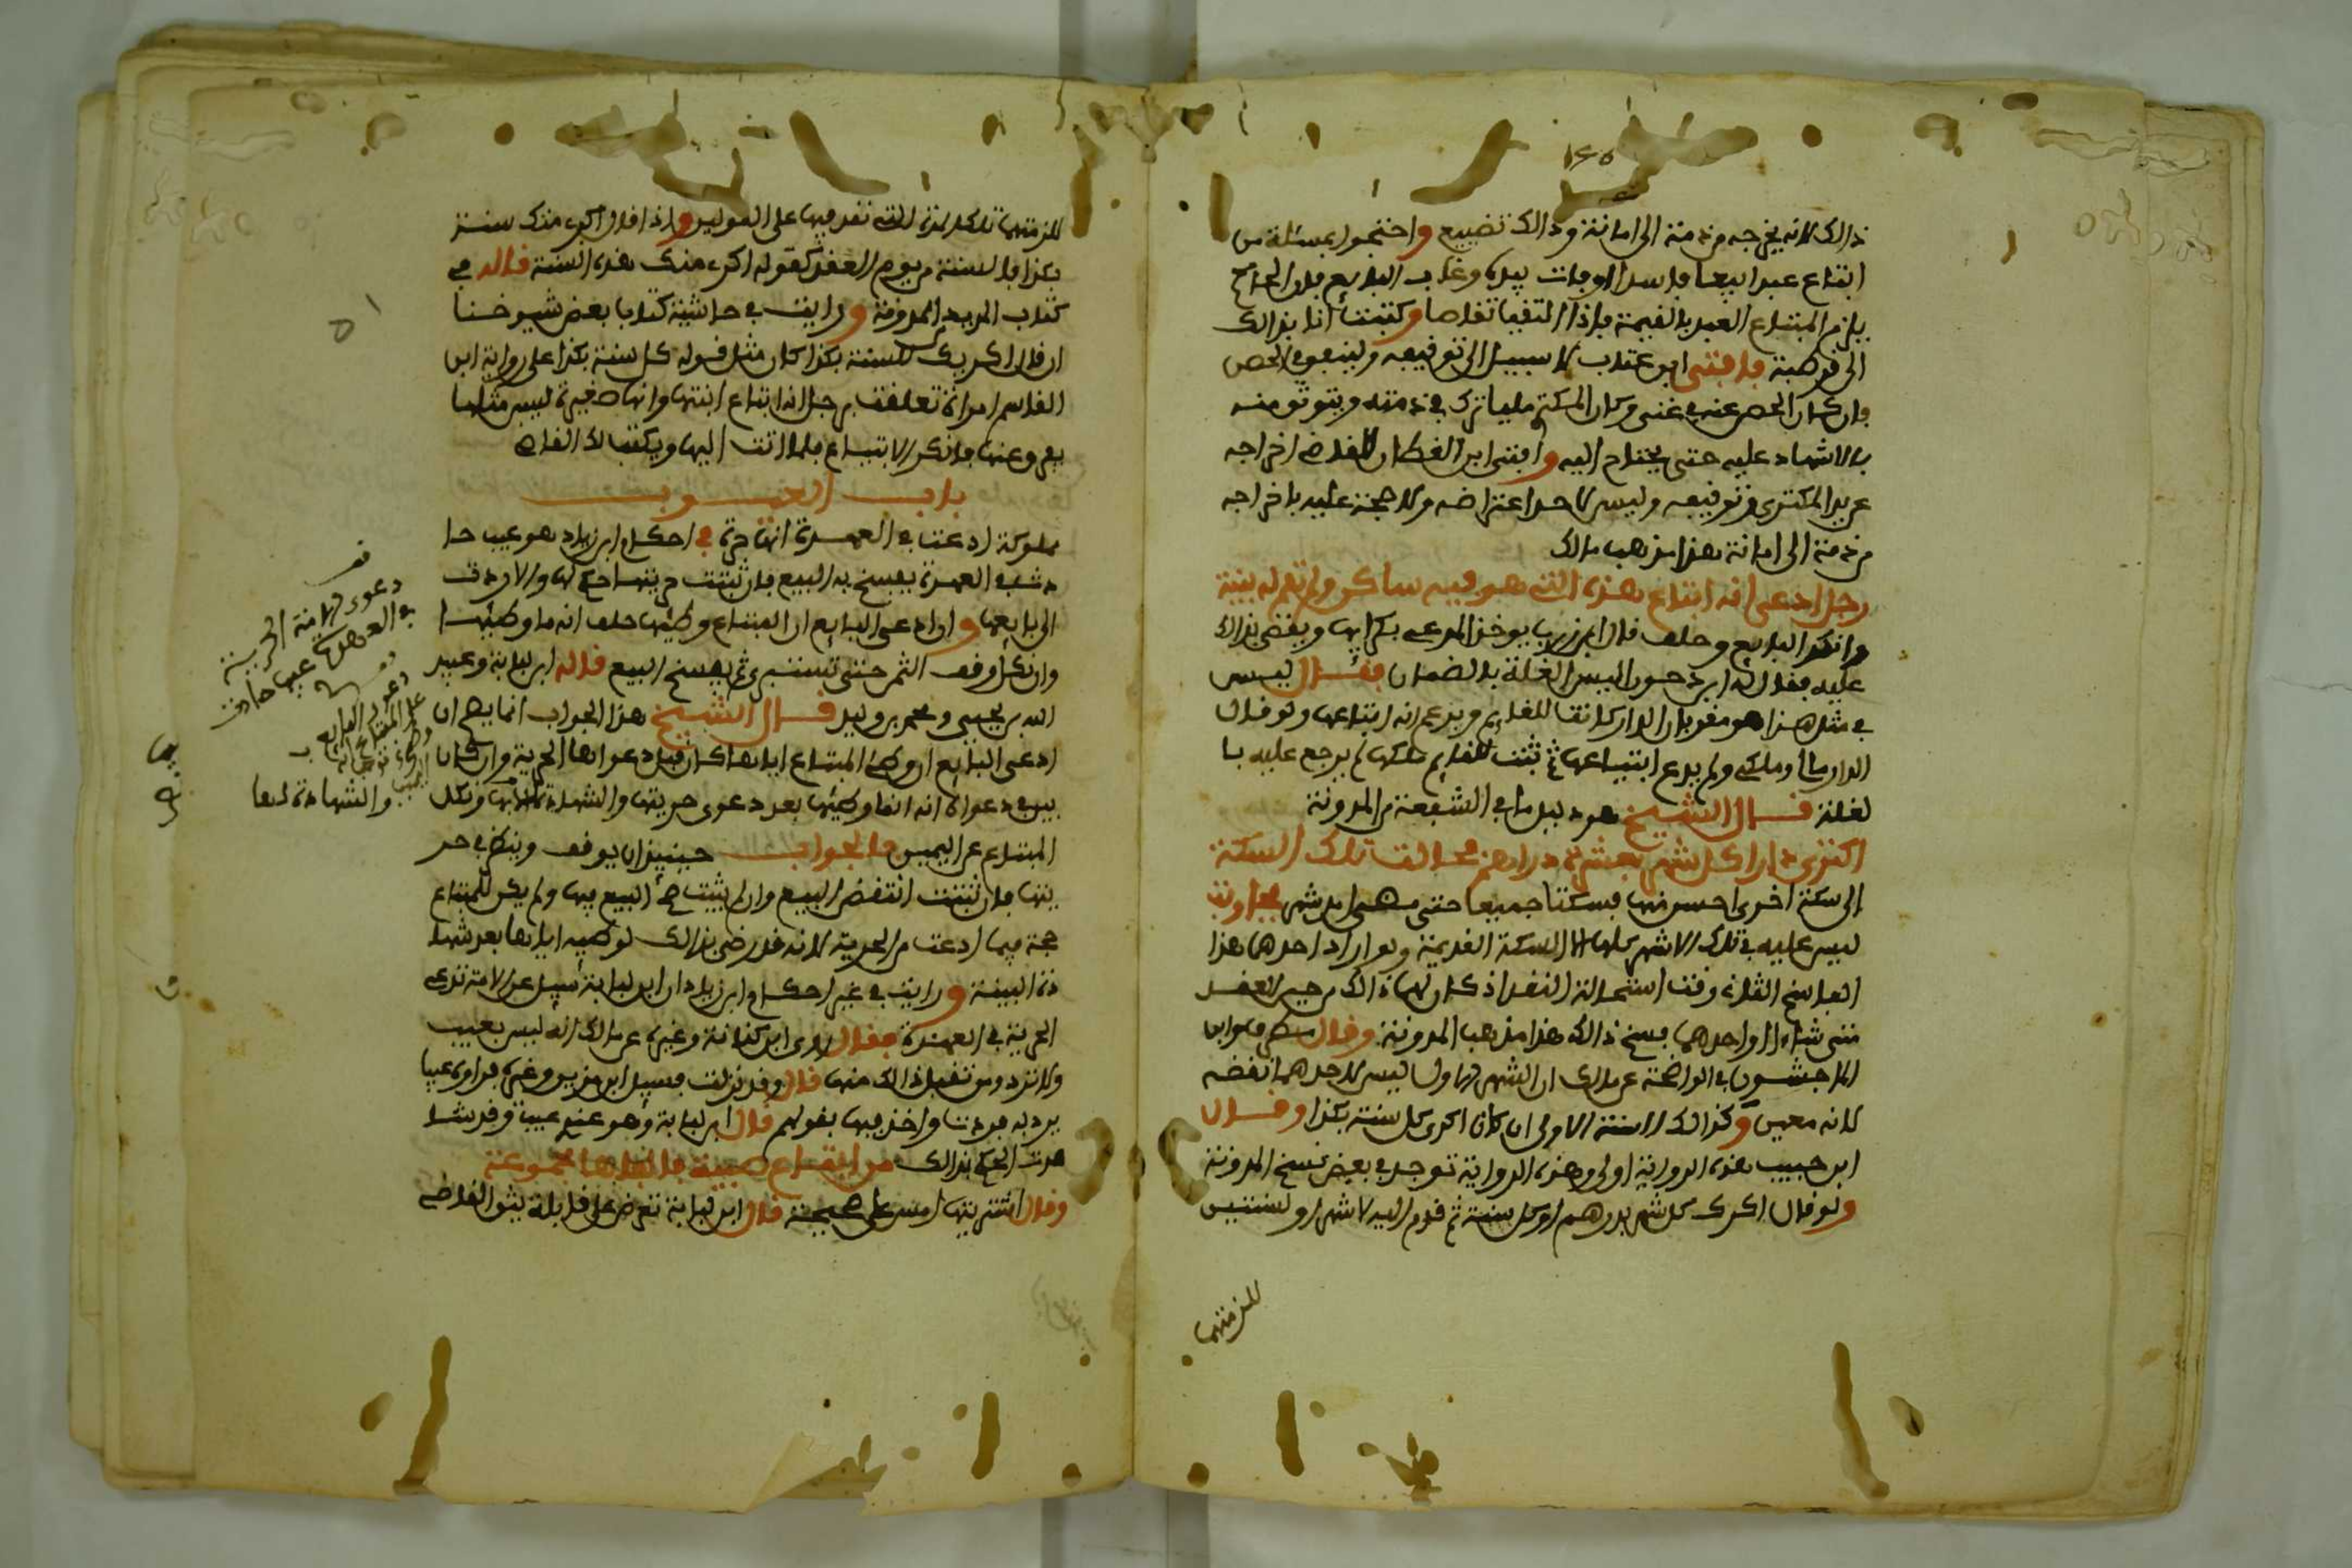 ١٤٥
ذالك لانه يخرجه من ذمة الى امانة وذالك تضييع واحتجوا بمسئلة من
ابتاع عبدا بيعا فاسدا ومات بيده وغاب البايع فان الحاكم
يلزم المبتاع العبد بالقيمة فاذا التقيا تقاصا وكتبت انا بذالك
الى قرطبة فافتى ابن عتاب لا سبيل الى توقيفه وينبغي الحض
فان كان الحصن عنه في غنى وكان المكتري مليا ترك في ذمته ويتوثق منه
بالاشهاد عليه حتى يحتاج اليه وافتى ابن القطان للقاضي اخراجه
عن يد المكتري وتوقيفه وليس لاحد اعتراضه ولا حجة عليه باخراجه
من ذمة الى امانة هذا مذهب مالك
رجل ادعى انه ابتاع هذه التي هو فيه ساكن ولم تقم له بينة
وانكر البايع وحلف قال ابن زرب يوخذ المدعي بكرايها ويقضى بذالك
عليه فقال له ابن دحون اليس الغلة بالضمان فقال ليس
في مثل هذا هو مقر بان الدار كانت للقايم ويزعم انه ابتاعها ولو قال
الدار مالي وملكي ولم يدع ابتياعها ثم ثبت للقايم ملكها لم يرجع عليه با
لغلة قال الشيخ هو دليل ما في الشفعة من المدونة
اكترى دارا كل شهر بعشرة دراهم ثم حالت تلك السكة
الى سكة اخرى احسن منها فسكتا جميعا حتى مضى اشهر فجاوبت
ليس عليه في تلك الاشهر كلها الا السكة القديمة ولو اراد احدهما هذا
الفاسخ القاء وقت استحالة النقد اذ كان لهما ذالك من حين العقد
متى شاء الواحدهما فسخ ذالك هذا مذهب المدونة وقال مطرف وابن
الماجشون في الواضحة عن مالك ان الشهر الاول ليس لاحدهما نقضه
لانه معين وكذالك السنة الاولى ان كان اكرى كل سنة بكذا وقال
ابن حبيب هذه الرواية اولى وهذه الرواية توجد في بعض نسخ المدونة
ولو قال اكرك كل شهر بدرهم او كل سنة ثم قدم اليه لاشهر او لسنتين
للزمتهما
للزمتهما تلك المدة التي نقد فيها على القولين واذا قال اكري منك سنة
بكذا فالسنة من يوم العقد كقوله اكري منك هذه السنة قاله في
كتاب المريد المدونة ورايت في حاشية كتاب بعض شيوخنا
ان قال اكريك السنة بكذا كان مثل قوله كل سنة بكذا على رواية ابن
القاسم امراة تعلقت برجل انه ابتاع ابنتها وانها صغيرة ليس مثلها
يفرق عنها فانكر الابتياع فلما اتت اليها ويكتب لك القاضي
باب العيوب
مملوكة ادعت في العهدة انها حرة في احكام ابن زياد هو عيب حا
دث في العهدة يفسخ به البيع فان ثبتت حريتها حكم لها والا ردت
الى بايعها وان ادعى البايع ان المبتاع وطيها حلف انه ما وطيها
وان نكل اوقف الثمن حتى تستبرئ ثم يفسخ البيع قاله ابن لبابة وعبيد
الله بن يحيى ومحمد بن وليد قال الشيخ هذا الجواب انما يصح ان
ادعى البايع ان وطئ المبتاع اياها كان قبل دعواها الحرية وان كان
بين دعواه انه انما وطيها بعد دعوى حريتها والشهادة لها ونكل
المبتاع عن اليمين فالجواب حينيذ ان يوقف وينظر في حر
يتها فان ثبتت انتقض البيع وان لم يثبت صح البيع فيها ولم يكن للمبتاع
حجة فيما ادعت من الحرية لانه قد رضي بذالك لوطيه اياها بعد شها
دة البينة ورايت في غير احكام ابن زياد ان ابن لبابة سيل عن الامة تدعي
الحرية في العهدة فقال روى ابن كنانة وغيره عن مالك انه ليس بعيب
ولا ترد ومن تقبل ذالك منها قال وقد نزلت فسيل ابن مزين وغيره فراوه عيبا
يرد به فردت واخذ فيها بقولهم قال ابن لبابة وهو عندي عيب وقد شا
هدت الحكم بذالك من ابتاع صبية فالفاها مجموعة
وقال اشتريتها امس على صحيحة قال ابن لبابة تعرض على قابلة يثق القاضي
قف
دعوى الامة الحرية
في العهدة عيب حادث
دعوى البايع
على المبتاع
والشهادة لها